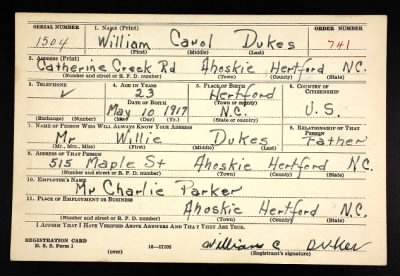 SERIAL NUMBER 1. NAME (Print) ORDER NUMBER
1504 William Carol Dukes 741
(First) (Middle) (Last)
2. ADDRESS (Print)
Catherine Creek Rd Ahoskie Hertford N.C.
(Number and street or R. F. D. number) (Town) (County) (State)
3. TELEPHONE 4. AGE IN YEARS 5. PLACE OF BIRTH 6. COUNTRY OF CITIZENSHIP
23 Hertford
DATE OF BIRTH (Town or county)
May 10 1917 N.C. U.S.
(Exchange) (Number) (Mo.) (Day) (Yr.) (State or country)
7. NAME OF PERSON WHO WILL ALWAYS KNOW YOUR ADDRESS 8. RELATIONSHIP OF THAT PERSON
Mr Willie Dukes Father
(Mr., Mrs., Miss) (First) (Middle) (Last)
9. ADDRESS OF THAT PERSON
515 Maple St Ahoskie Hertford N.C.
(Number and street or R. F. D. number) (Town) (County) (State)
10. EMPLOYER'S NAME
Mr Charlie Parker
11. PLACE OF EMPLOYMENT OR BUSINESS
Ahoskie Hertford N.C.
(Number and street or R. F. D. number) (Town) (County) (State)
I AFFIRM THAT I HAVE VERIFIED ABOVE ANSWERS AND THAT THEY ARE TRUE.
REGISTRATION CARD
D. S. S. Form 1 (over) 16—17105 William C Dukes
(Registrant's signature)